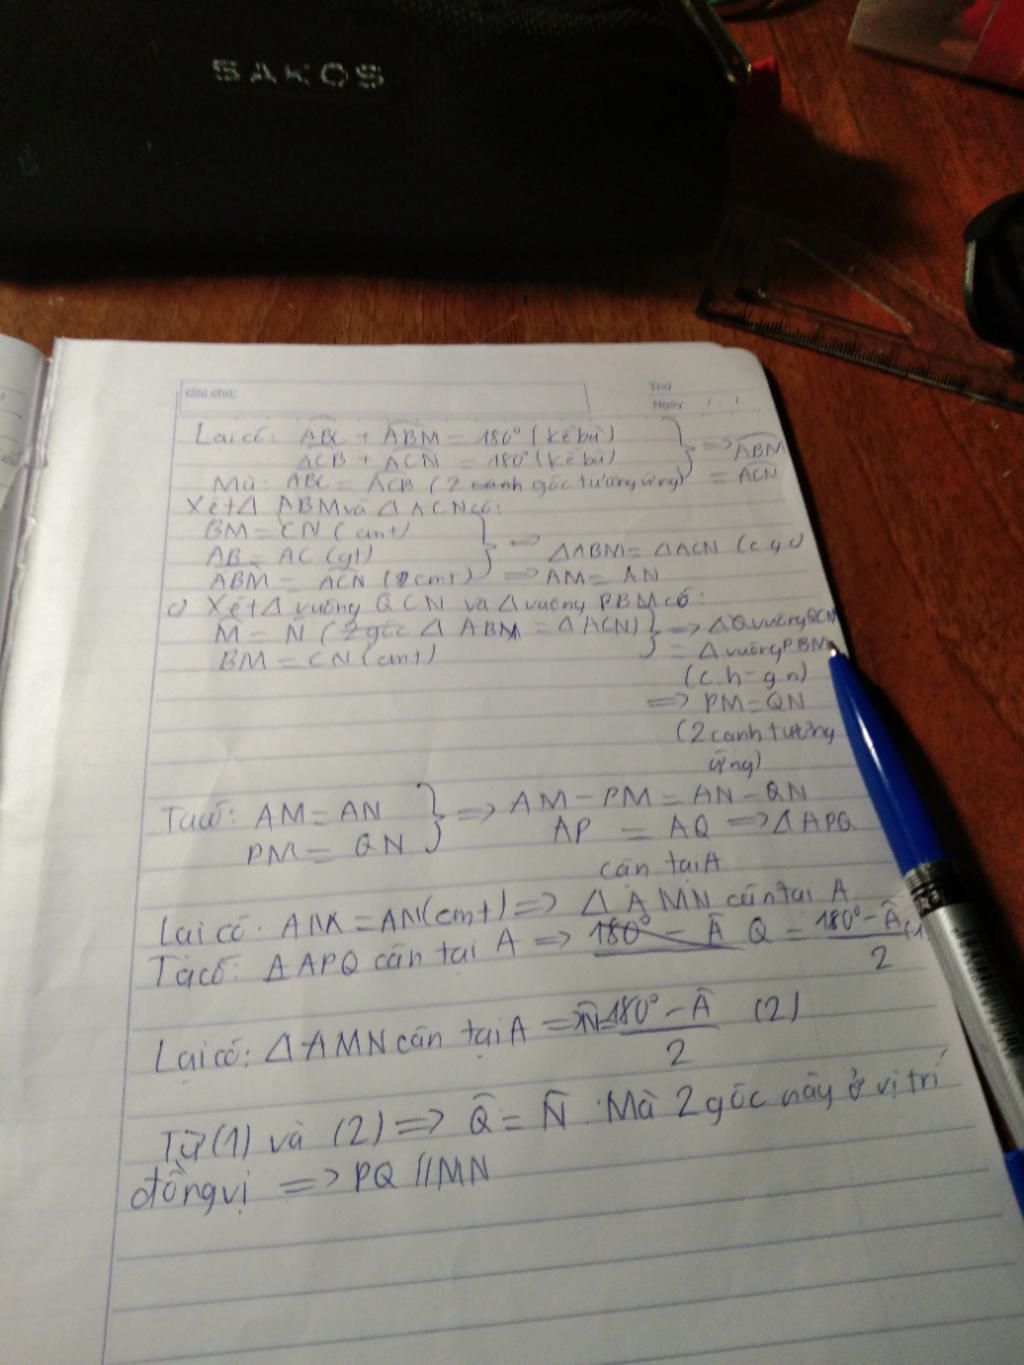 SAKOS
Ghi chú:
Thứ
Ngày / /
Lại có: ABC + ABM = 180° (kề bù)
ACB + ACN = 180° (kề bù)
=> ABM = ACN
Mà: ABC = ACB (2 cạnh góc tương ứng)
Xét Δ ABM và Δ ACN có:
BM = CN (cmt)
AB = AC (gt)
=> ΔABM = ΔACN (c.g.c)
ABM = ACN (cmt) => AM = AN
c) Xét Δ vuông QCN và Δ vuông PBM có:
M̂ = N̂ (2 góc Δ ABM = Δ ACN)
=> Δ vuông QCN
BM = CN (cmt)
= Δ vuông PBM
(c.h-g.n)
=> PM = QN
(2 cạnh tương
ứng)
Ta có: AM = AN
=> AM - PM = AN - QN
PM = QN
AP = AQ => Δ APQ
cân tại A
Lại có: AM = AN (cmt) => Δ AMN cân tại A
Ta có: Δ APQ cân tại A => Q = 180° - Â / 2 (1)
Lại có: Δ AMN cân tại A => N̂ = 180° - Â / 2 (2)
Từ (1) và (2) => Q̂ = N̂. Mà 2 góc này ở vị trí
đồng vị => PQ // MN